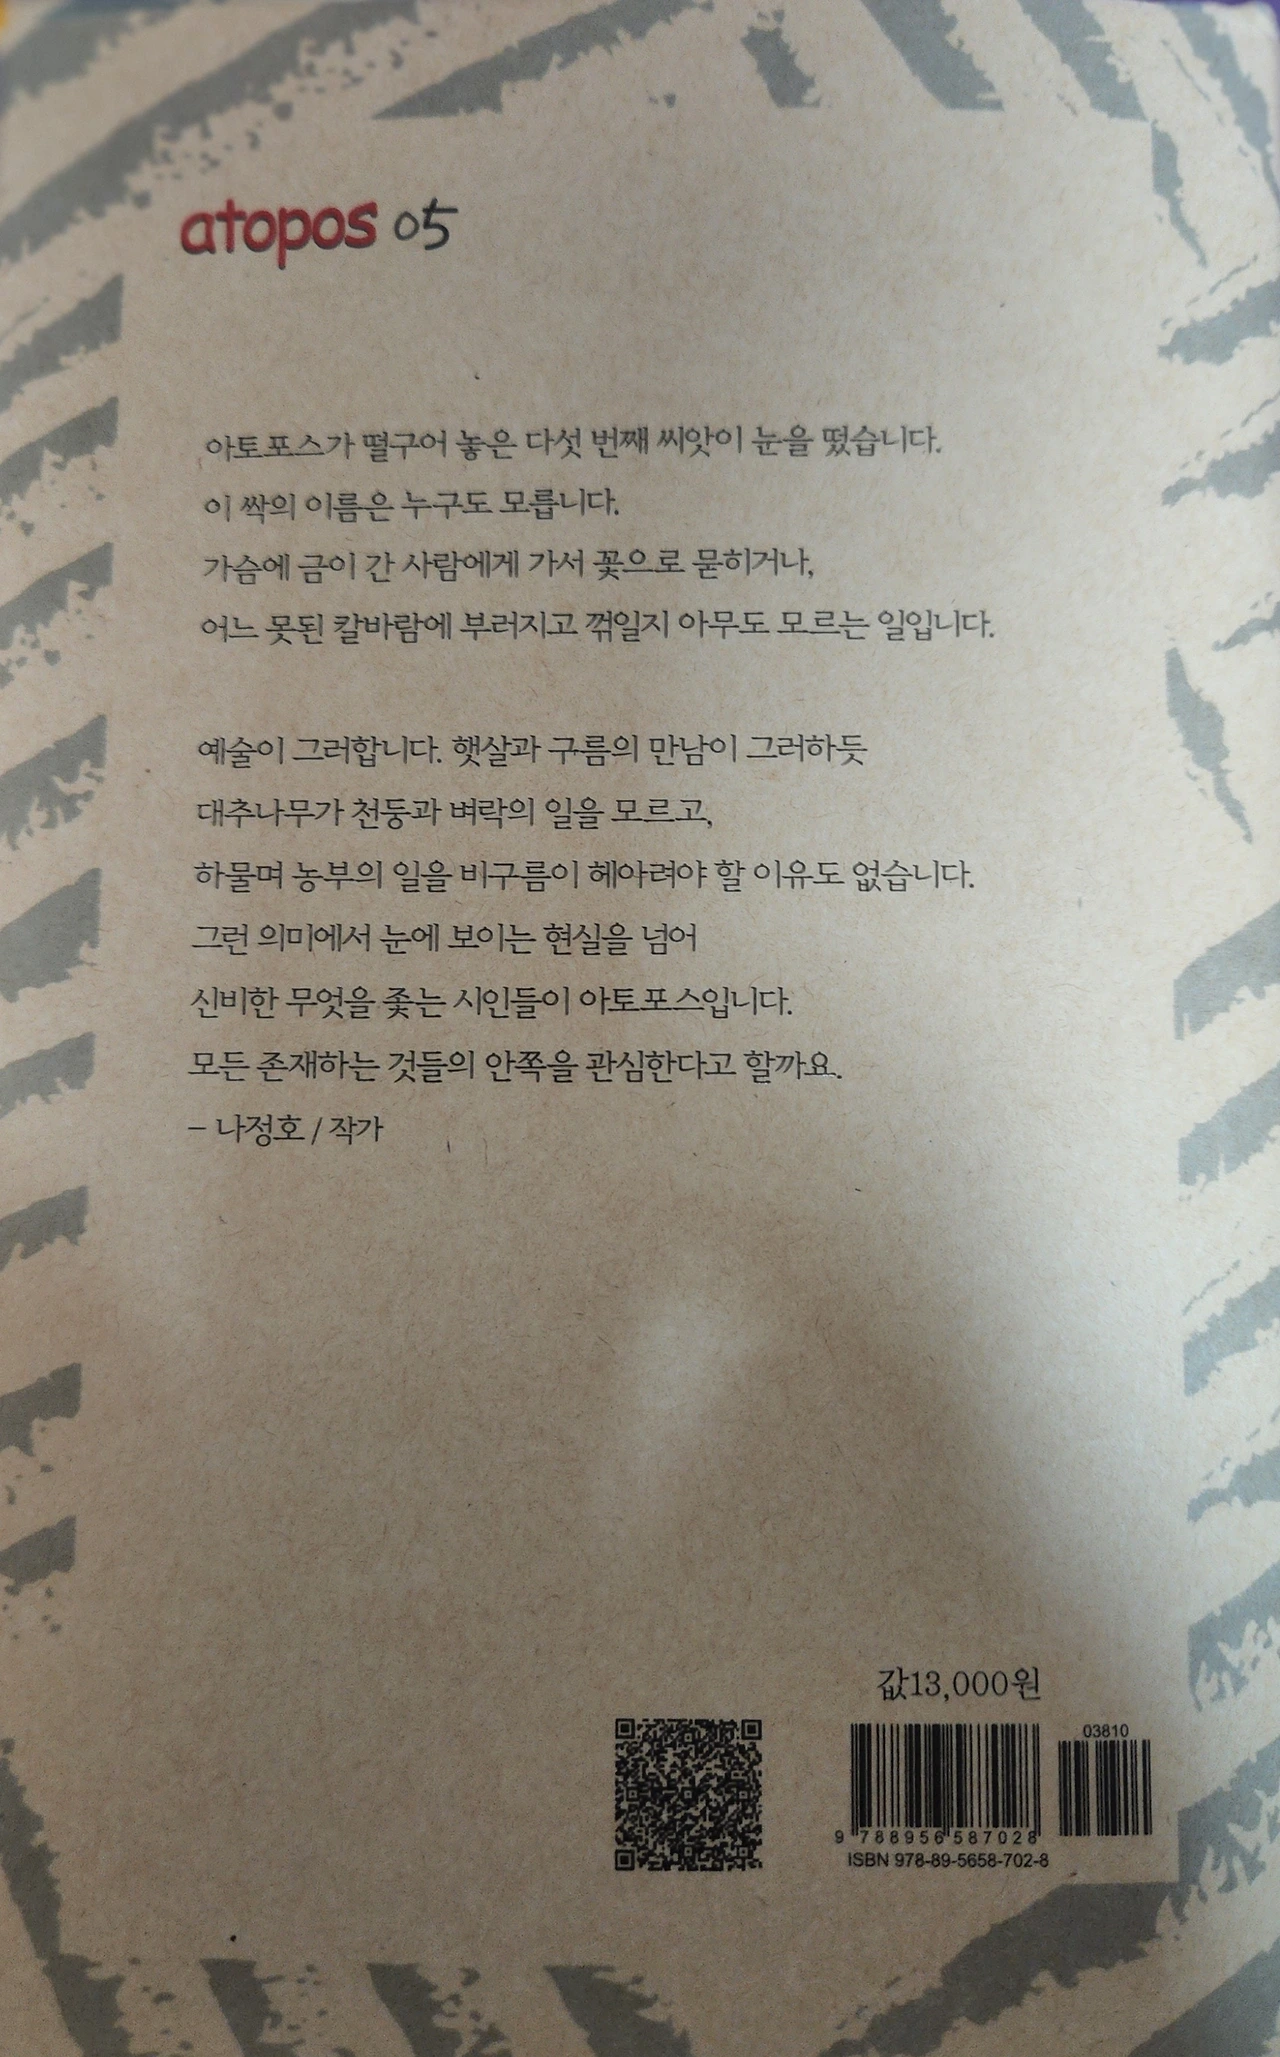 atopos 05
아토포스가 떨구어 놓은 다섯 번째 씨앗이 눈을 떴습니다.
이 싹의 이름은 누구도 모릅니다.
가슴에 금이 간 사람에게 가서 꽃으로 묻히거나,
어느 못된 칼바람에 부러지고 꺾일지 아무도 모르는 일입니다.
예술이 그러합니다. 햇살과 구름의 만남이 그러하듯
대추나무가 천둥과 벼락의 일을 모르고,
하물며 농부의 일을 비구름이 헤아려야 할 이유도 없습니다.
그런 의미에서 눈에 보이는 현실을 넘어
신비한 무엇을 좇는 시인들이 아토포스입니다.
모든 존재하는 것들의 안쪽을 관심한다고 할까요.
– 나정호 / 작가
값13,000원
03810
9 788956 587028
ISBN 978-89-5658-702-8